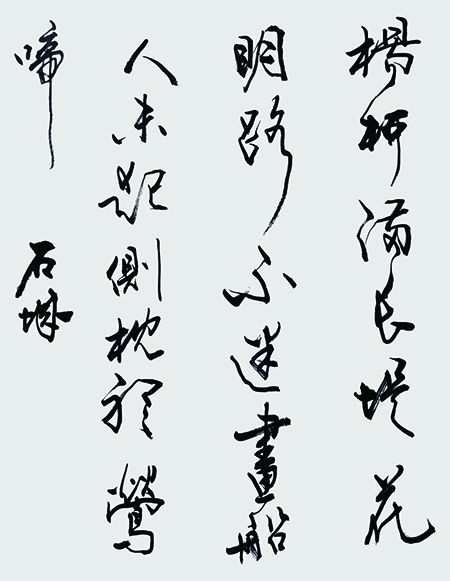 楊柳滿長堤花
明路不迷畫船
人未起側枕聽鶯
啼 石城